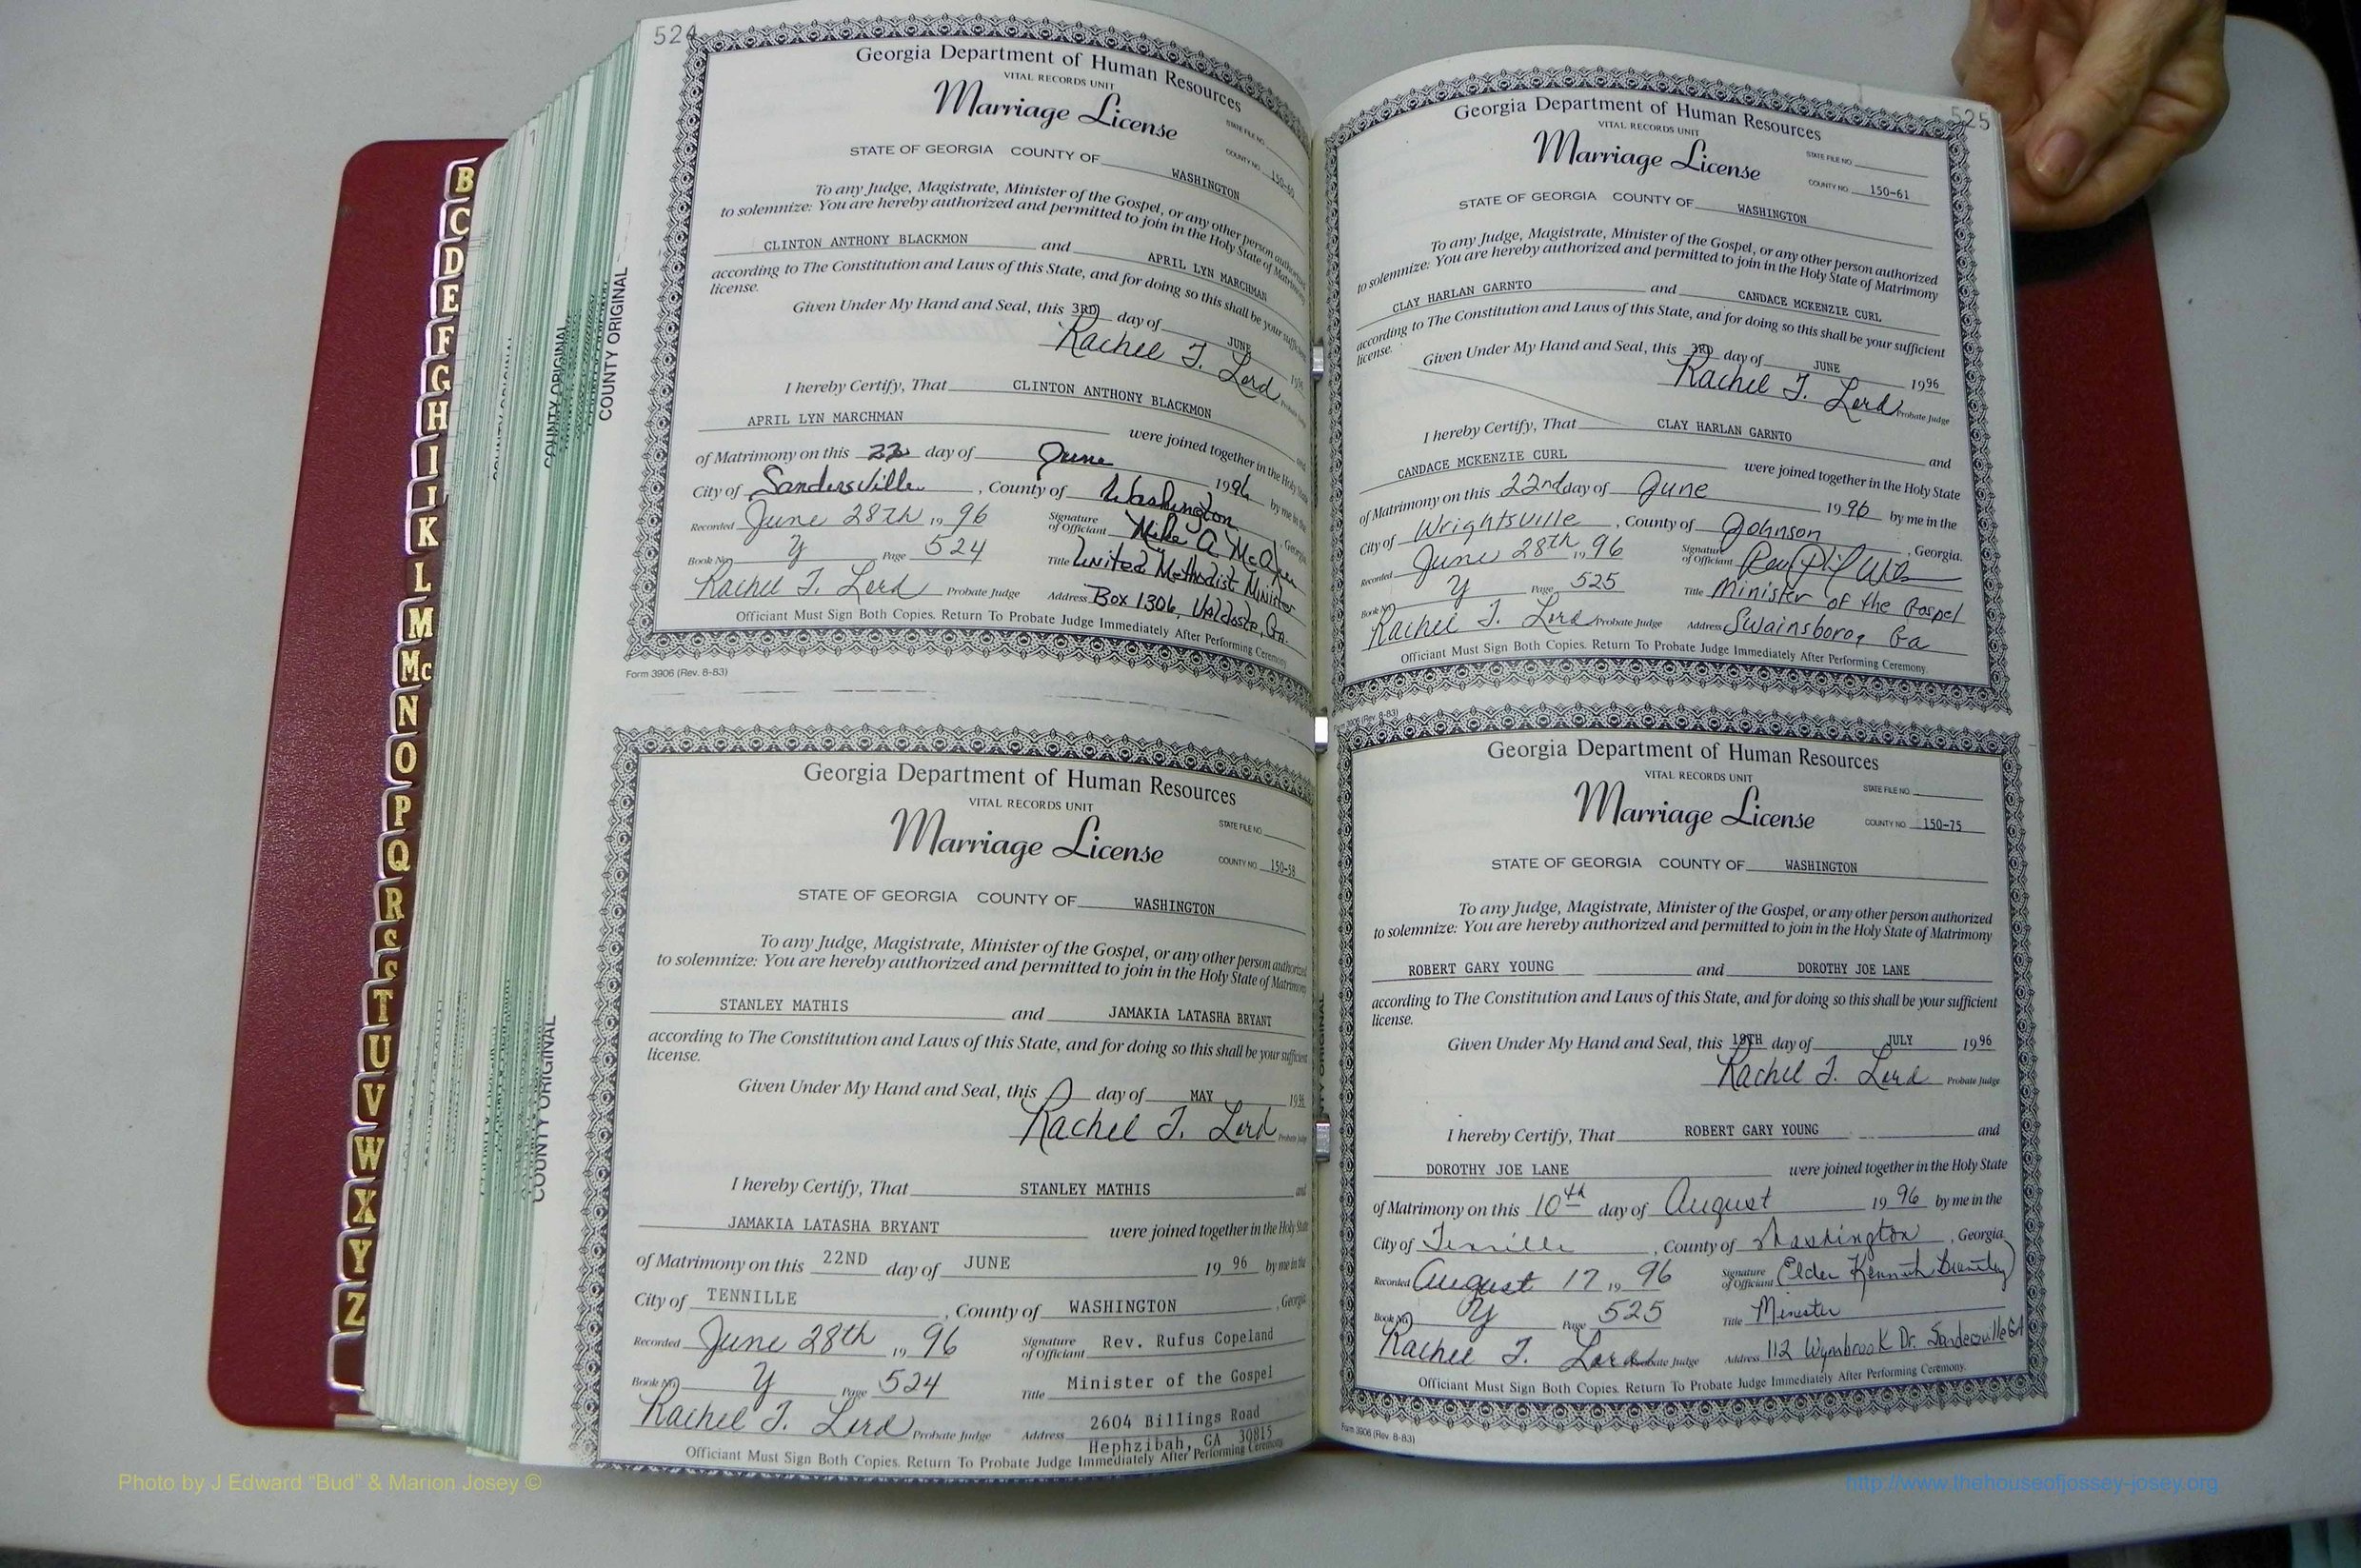 524
Georgia Department of Human Resources
VITAL RECORDS UNIT
Marriage License
STATE FILE NO.
COUNTY NO. 150-60
STATE OF GEORGIA COUNTY OF WASHINGTON
To any Judge, Magistrate, Minister of the Gospel, or any other person authorized
to solemnize: You are hereby authorized and permitted to join in the Holy State of Matrimony
CLINTON ANTHONY BLACKMON and APRIL LYN MARCHMAN
according to The Constitution and Laws of this State, and for doing so this shall be your sufficient
license.
Given Under My Hand and Seal, this 3RD day of JUNE
Rachel T. Lord
I hereby Certify, That CLINTON ANTHONY BLACKMON and
APRIL LYN MARCHMAN were joined together in the Holy State
of Matrimony on this 22 day of June 1996 by me in the
City of Sandersville, County of Washington, Georgia
Recorded June 28th 19 96 Signature of Officiant Mike A.
Book No. Y Page 524 Title United Methodist Minister
Rachel T. Lord Probate Judge Address Box 1306, Valdosta, Ga.
Officiant Must Sign Both Copies. Return To Probate Judge Immediately After Performing Ceremony
Form 3906 (Rev. 8-83)
Georgia Department of Human Resources
VITAL RECORDS UNIT
Marriage License
STATE FILE NO.
COUNTY NO. 150-59
STATE OF GEORGIA COUNTY OF WASHINGTON
To any Judge, Magistrate, Minister of the Gospel, or any other person authorized
to solemnize: You are hereby authorized and permitted to join in the Holy State of Matrimony
STANLEY MATHIS and JAMAKIA LATASHA BRYANT
according to The Constitution and Laws of this State, and for doing so this shall be your sufficient
license.
Given Under My Hand and Seal, this day of MAY 1996
Rachel T. Lord Probate Judge
I hereby Certify, That STANLEY MATHIS and
JAMAKIA LATASHA BRYANT were joined together in the Holy State
of Matrimony on this 22ND day of JUNE 19 96 by me in the
City of TENNILLE, County of WASHINGTON, Georgia
Recorded June 28th 19 96 Signature of Officiant Rev. Rufus Copeland
Book No. Y Page 524 Title Minister of the Gospel
Rachel T. Lord Probate Judge Address 2604 Billings Road
Hephzibah, GA 30815
Officiant Must Sign Both Copies. Return To Probate Judge Immediately After Performing Ceremony
525
Georgia Department of Human Resources
VITAL RECORDS UNIT
Marriage License
STATE FILE NO.
COUNTY NO. 150-61
STATE OF GEORGIA COUNTY OF WASHINGTON
To any Judge, Magistrate, Minister of the Gospel, or any other person authorized
to solemnize: You are hereby authorized and permitted to join in the Holy State of Matrimony
CLAY HARLAN GARNTO and CANDACE MCKENZIE CURL
according to The Constitution and Laws of this State, and for doing so this shall be your sufficient
license.
Given Under My Hand and Seal, this 3RD day of JUNE 1996
Rachel T. Lord Probate Judge
I hereby Certify, That CLAY HARLAN GARNTO and
CANDACE MCKENZIE CURL were joined together in the Holy State
of Matrimony on this 22nd day of June 1996 by me in the
City of Wrightsville, County of Johnson, Georgia.
Recorded June 28th 19 96 Signature of Officiant Rev
Book No. Y Page 525 Title Minister of the Gospel
Rachel T. Lord Probate Judge Address Swainsboro, Ga
Officiant Must Sign Both Copies. Return To Probate Judge Immediately After Performing Ceremony.
Form 3906 (Rev. 8-83)
Georgia Department of Human Resources
VITAL RECORDS UNIT
Marriage License
STATE FILE NO.
COUNTY NO. 150-75
STATE OF GEORGIA COUNTY OF WASHINGTON
To any Judge, Magistrate, Minister of the Gospel, or any other person authorized
to solemnize: You are hereby authorized and permitted to join in the Holy State of Matrimony
ROBERT GARY YOUNG and DOROTHY JOE LANE
according to The Constitution and Laws of this State, and for doing so this shall be your sufficient
license.
Given Under My Hand and Seal, this day of JULY 1996
Rachel T. Lord Probate Judge
I hereby Certify, That ROBERT GARY YOUNG and
DOROTHY JOE LANE were joined together in the Holy State
of Matrimony on this 10th day of August 19 96 by me in the
City of Tennille, County of Washington, Georgia
Recorded August 17 19 96 Signature of Officiant Elder Kenneth Brantley
Book No. Y Page 525 Title Minister
Rachel T. Lord Probate Judge Address 112 Wynbrook Dr. Sandersville GA
Officiant Must Sign Both Copies. Return To Probate Judge Immediately After Performing Ceremony.
Form 3906 (Rev. 8-83)
COUNTY ORIGINAL
COUNTY ORIGINAL
COUNTY ORIGINAL
B
C
D
E
F
G
H
I
K
L
M
Mc
N
O
P
Q
R
S
T
U
V
W
X
Y
Z
Photo by J Edward "Bud" & Marion Josey ©
http://www.thehouseofjossey-josey.org